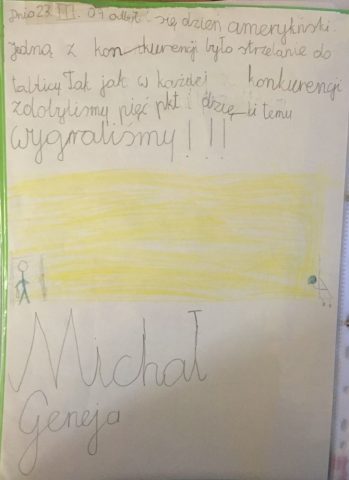 Dnia 23 III. 09 odbył się dzień amerykński.
Jedną z konkurencji było strzelanie do
tablicy Tak jak w każdej konkurencji
zdobyliśmy pięć pkt i dzięki temu
wygraliśmy!!!
Michał
Geneja